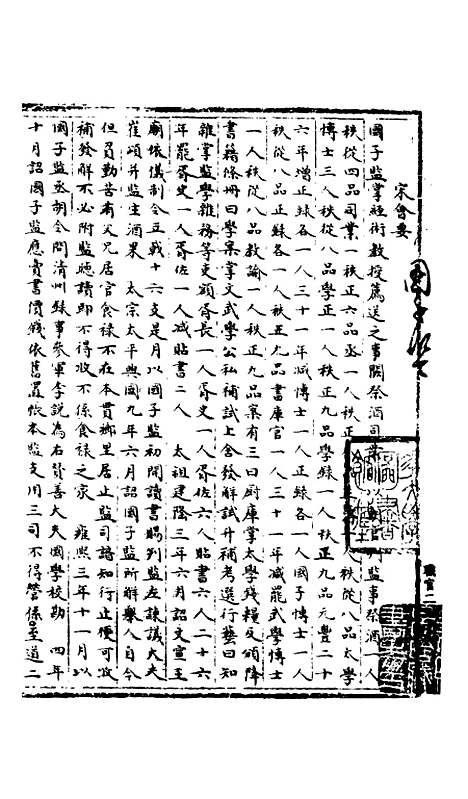 宋會要
國子監
國子監掌經術教授薦送之事闕祭酒司業以
監事祭酒一人
秩從四品司業一秩正六品丞一人秩正
人秩從八品太學
博士三人秩從八品學正一人秩正九品學錄一人秩正九品元豐二十
六年增正錄各一人三十一年减博士一人正錄各一人國子博士一人
秩從八品正錄各一人秩正九品書庫官一人三十一年减罷武學博士
一人秩從八品教諭一人秩正九品案有三曰厨庫掌太學錢糧及頒降
書籍條冊曰學案掌文武學公私補試上舍發解試升補考選行藝曰知
雜掌監學雜務等吏額胥長一人胥史一人胥佐六人貼書六人二十六
年罷胥史一人胥佐一人减貼書二人 太祖建隆三年六月詔文宣王
廟依儀制令立戟十六支是月以國子監初開讀書賜判監左諫議大夫
崔頌并監生酒果 太宗太平興國九年六月詔國子監所解舉人自今
但負勤苦有父兄居官食祿不在本貫鄉里居止監司諳知行止便可收
補發解不必附監聽讀即不得收不係食祿之家 雍熙三年十一月以
國子監丞胡令問清州錄事參軍李說為右贊善大夫國學校勘 四年
十月詔國子監應賣書價錢依舊置帳本監支用三司不得管係至道二
職官二